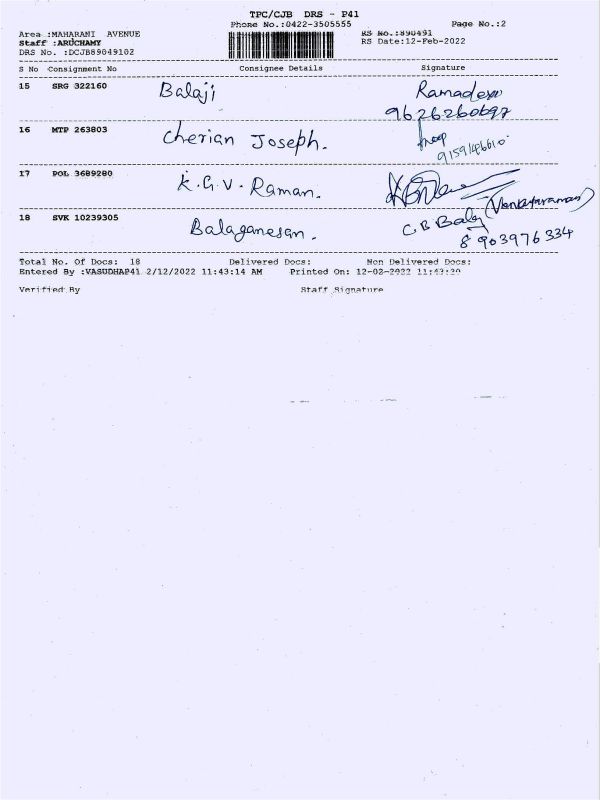 TPC/CJB DRS - P41
Phone No.:0422-3505555 Page No.:2
Area :MAHARANI AVENUE RS No.:890491
Staff :ARUCHAMY RS Date:12-Feb-2022
DRS No. :DCJB89049102
S No Consignment No Consignee Details Signature
15 SRG 322160 Balaji Ramadesw
9626260697
16 MTP 263803 Cherian Joseph.
9159146610
17 POL 3689280 K.G.V. Raman.
(Venkataraman)
18 SVK 10239305 Balaganesan. C B Balaj
8903976334
Total No. Of Docs: 18 Delivered Docs: Non Delivered Docs:
Entered By :VASUDHAP41 2/12/2022 11:43:14 AM Printed On: 12-02-2022 11:43:20
Verified By Staff Signature